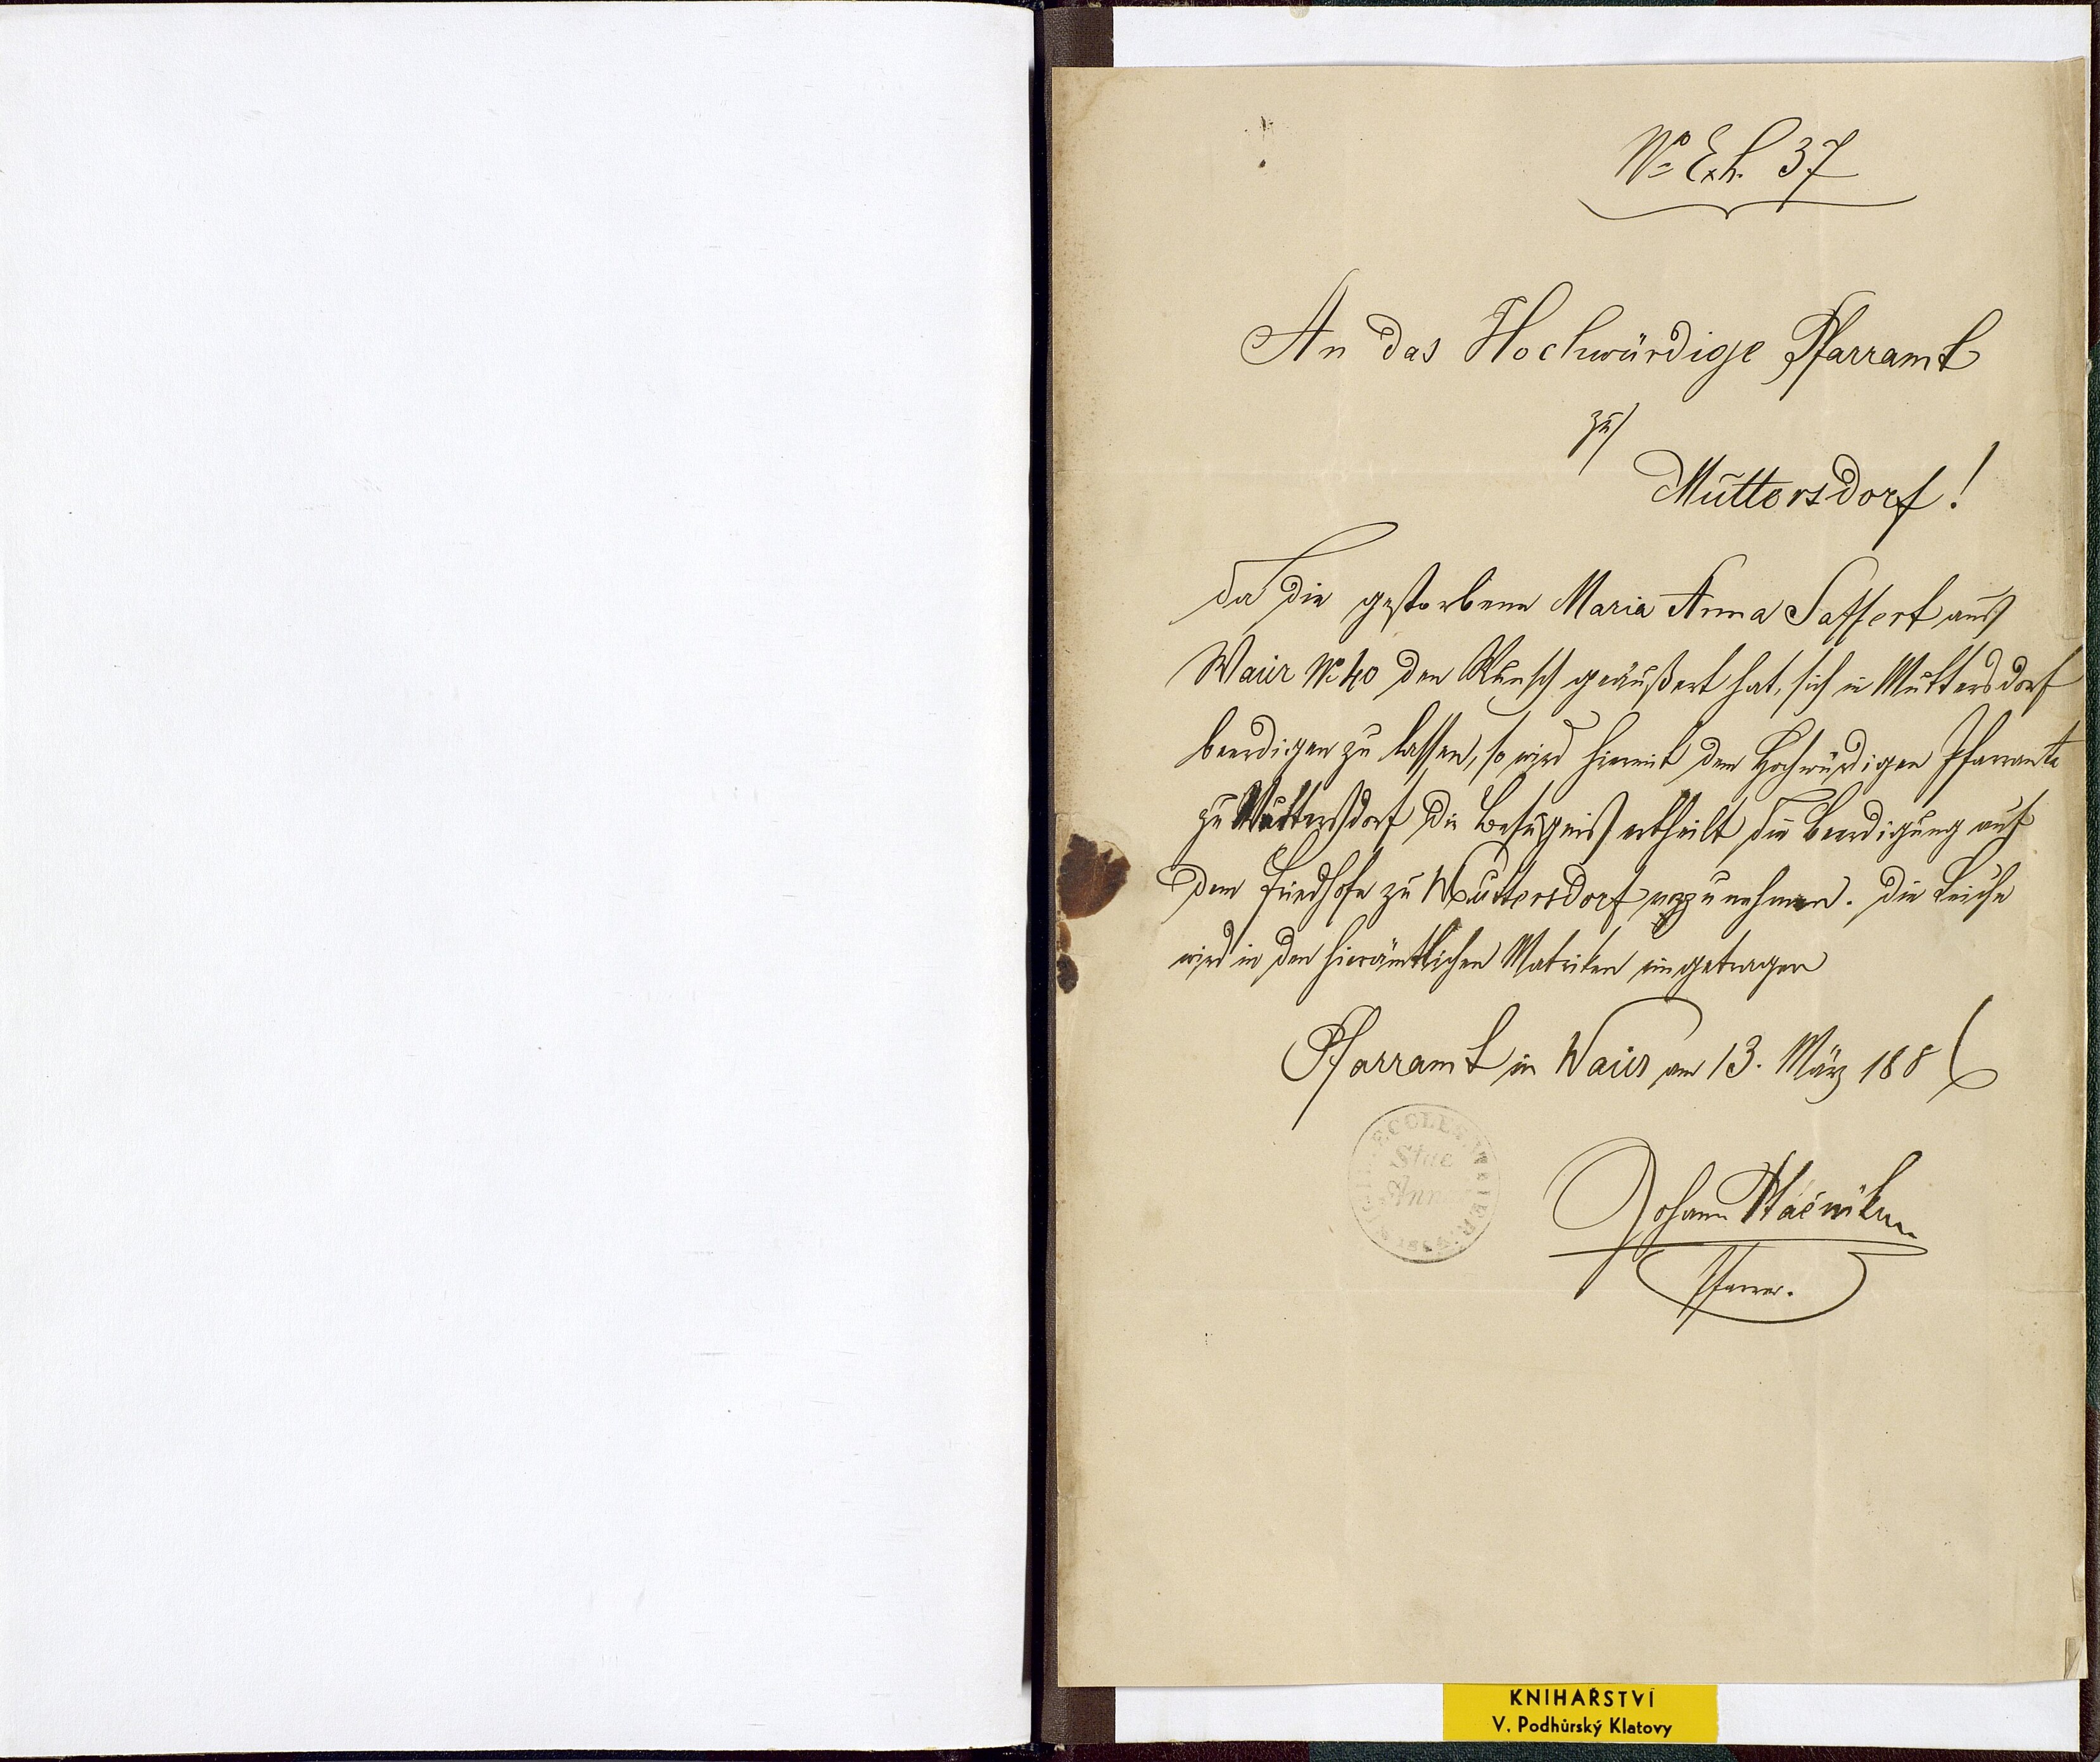 Nº Exh. 37
An das Hochwürdige Pfarramt
zu
Muttersdorf!
Da die gestorbene Maria Anna Saffert aus
Waier Nº 40 den Wunsch geäußert hat, sich in Muttersdorf
beerdigen zu lassen, so wird hiermit dem Hochwürdigen Pfarramte
zu Muttersdorf die Befugniß ertheilt die Beerdigung auf
dem Friedhofe zu Muttersdorf vorzunehmen. Die Leiche
wird in den hierämtlichen Matriken eingetragen
Pfarramt in Waier am 13. März 188
ECCLES
Stae
Anna
Johann
Pfarrer.
KNIHAŘSTVÍ
V. Podhůrský Klatovy